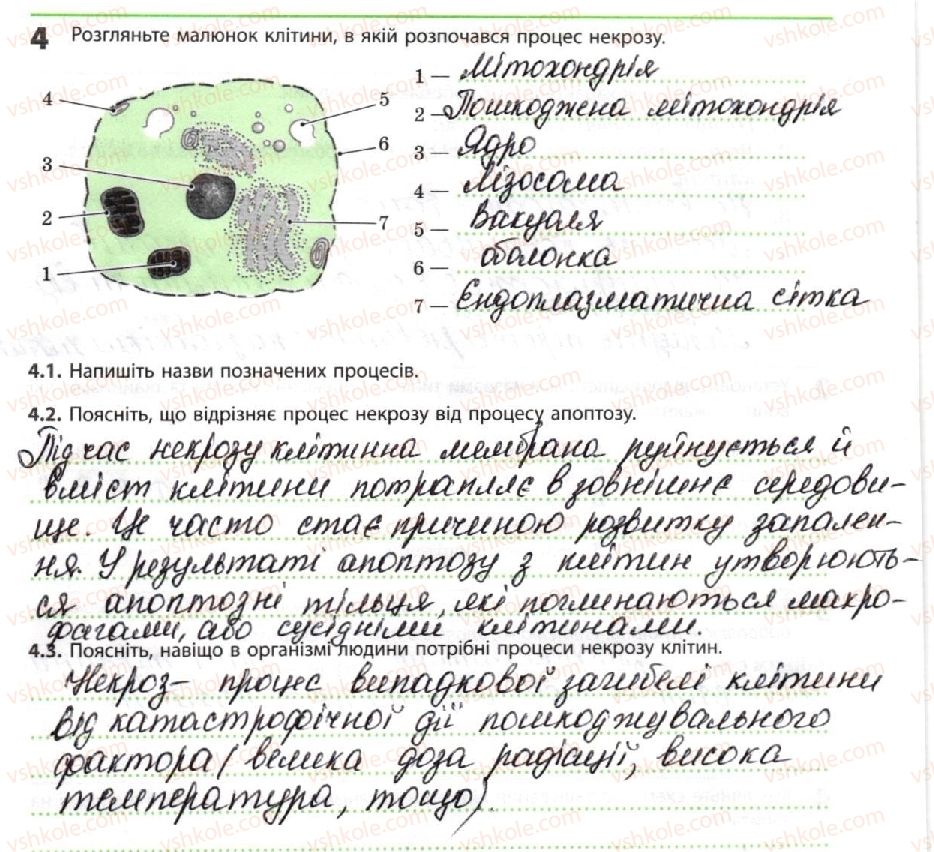 4 Розгляньте малюнок клітини, в якій розпочався процес некрозу.
1 — Мітохондрія
2 — Пошкоджена мітохондрія
3 — Ядро
4 — Лізосома
5 — Вакуоля
6 — оболонка
7 — Ендоплазматична сітка
4
3
2
1
5
6
7
4.1. Напишіть назви позначених процесів.
4.2. Поясніть, що відрізняє процес некрозу від процесу апоптозу.
Під час некрозу клітинна мембрана руйнується й
вміст клітини потрапляє в зовнішнє середови-
ще. Це часто стає причиною розвитку запален-
ня. У результаті апоптозу з клітин утворюють-
ся апоптозні тільця, які поглинаються макро-
фагами, або сусідніми клітинами.
4.3. Поясніть, навіщо в організмі людини потрібні процеси некрозу клітин.
Некроз - процес випадкової загибелі клітини
від катастрофічної дії пошкоджувального
фактора (велика доза радіації, висока
температура, тощо).
vshkole.com